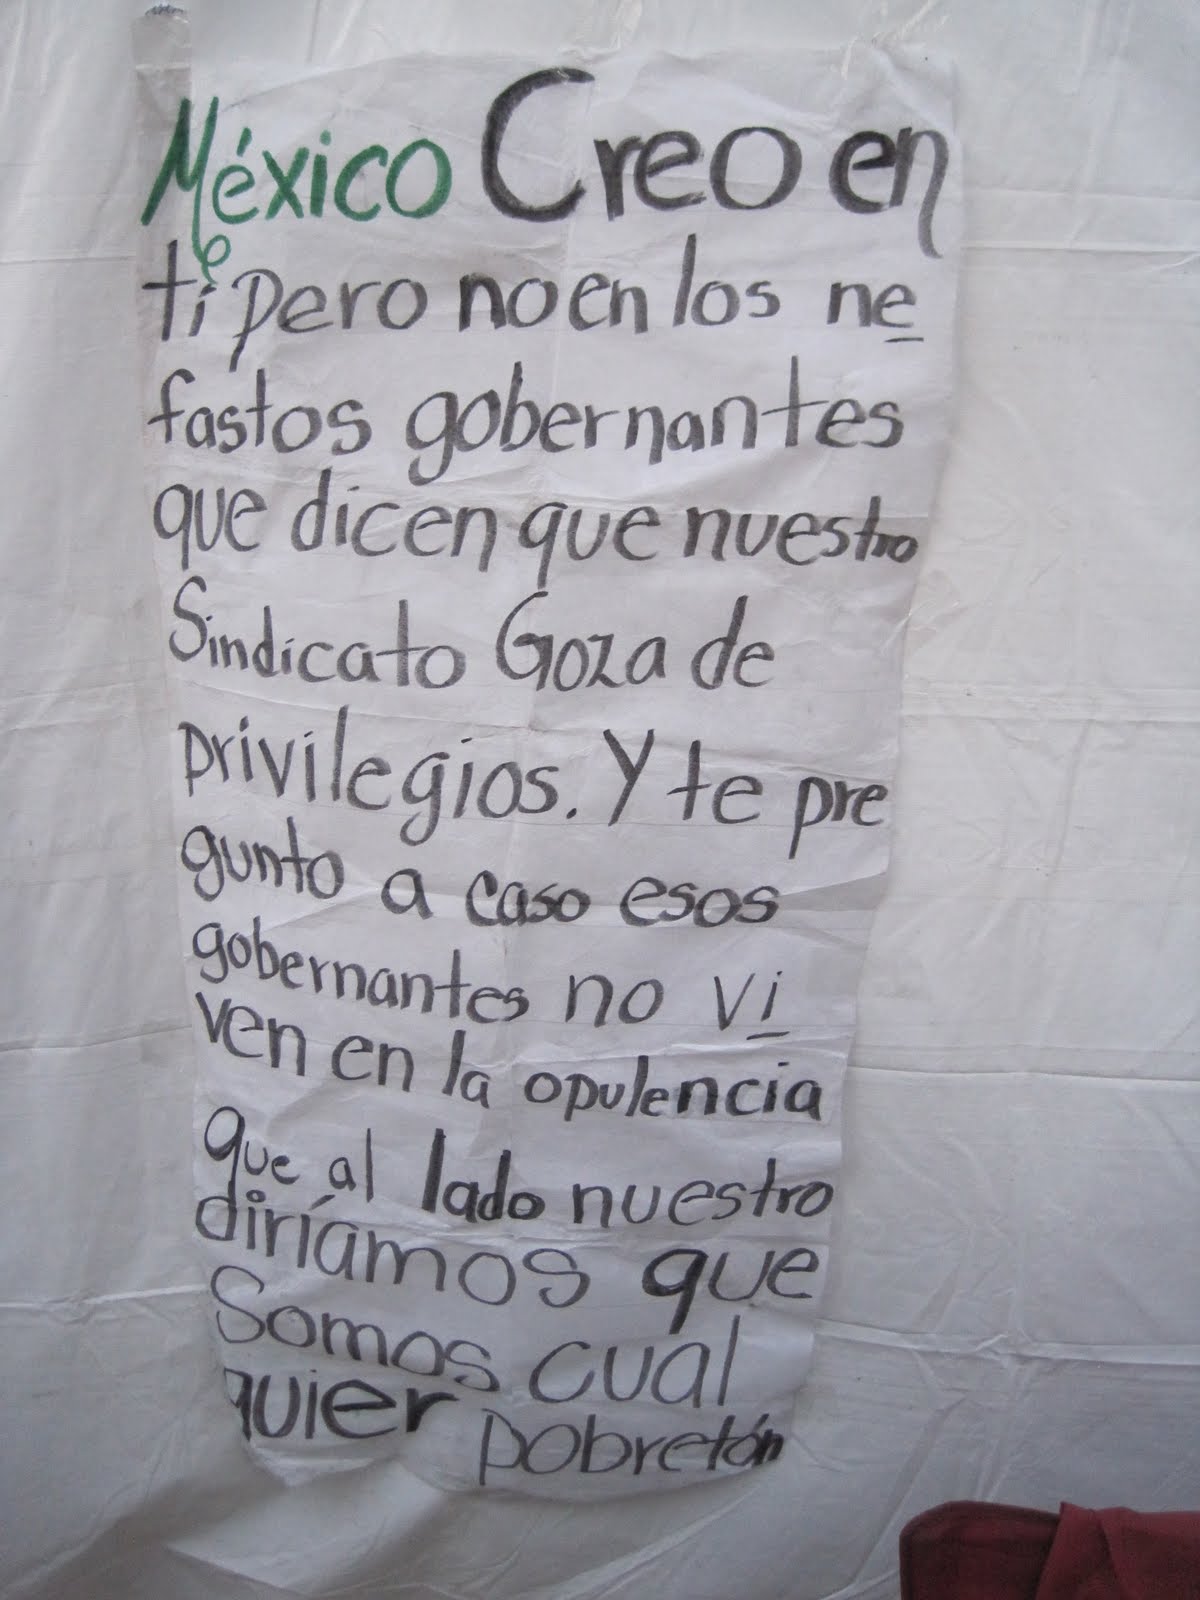 México Creo en
ti pero no en los ne
fastos gobernantes
que dicen que nuestro
Sindicato Goza de
privilegios. Y te pre
gunto a caso esos
gobernantes no vi
ven en la opulencia
que al lado nuestro
diríamos que
Somos cual
quier pobretón